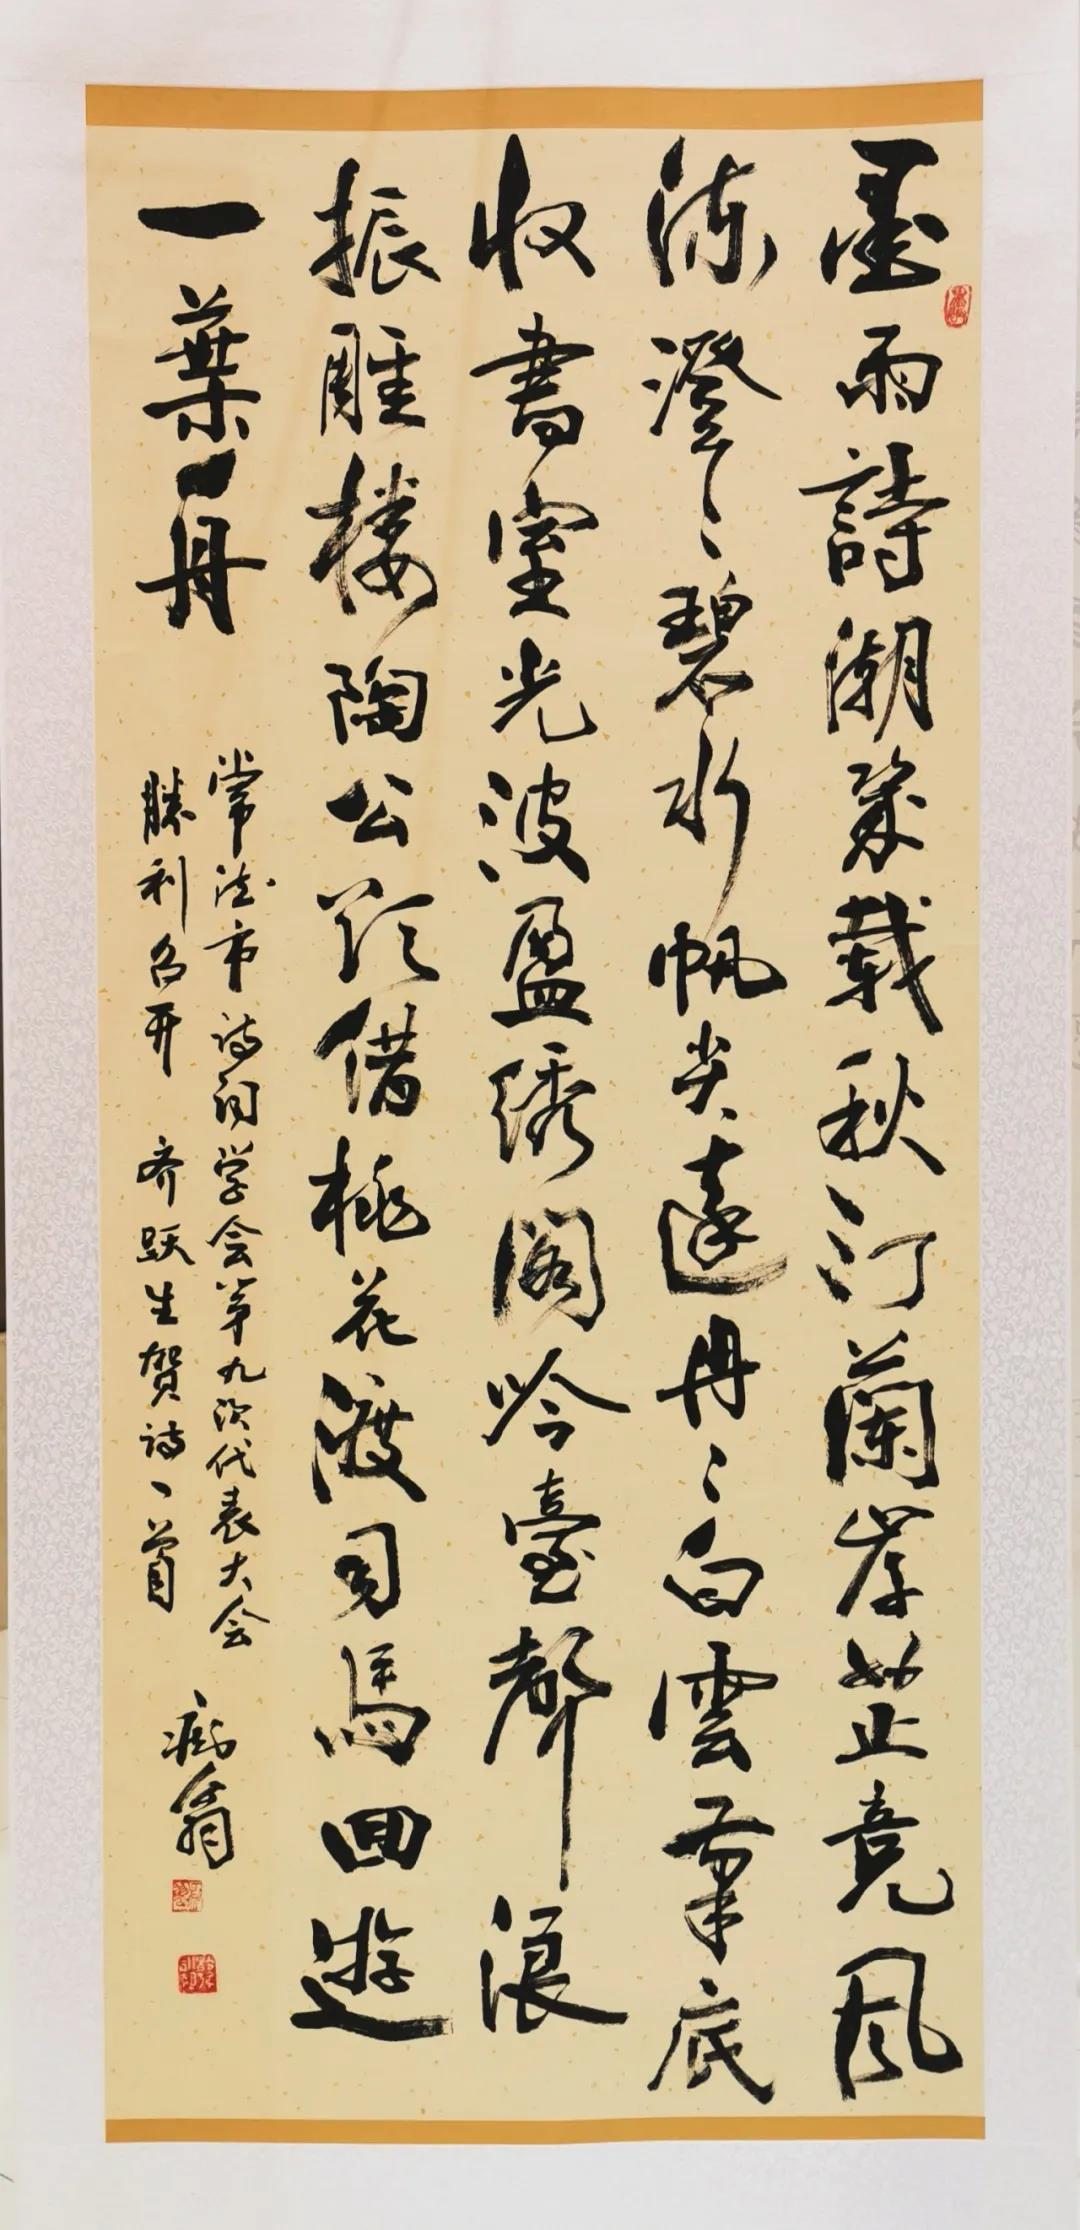 墨雨詩潮幾載秋汀蘭岸芷竞風
流澄々碧水帆尖遠冉々白雲筆底
收書室光波盈綉閣吟臺聲浪
振雕楼陶公欲借桃花渡司馬回遊
一葉舟
常德市诗词学会第九次代表大会
勝利召开 齐跃生贺诗一首
痴翁